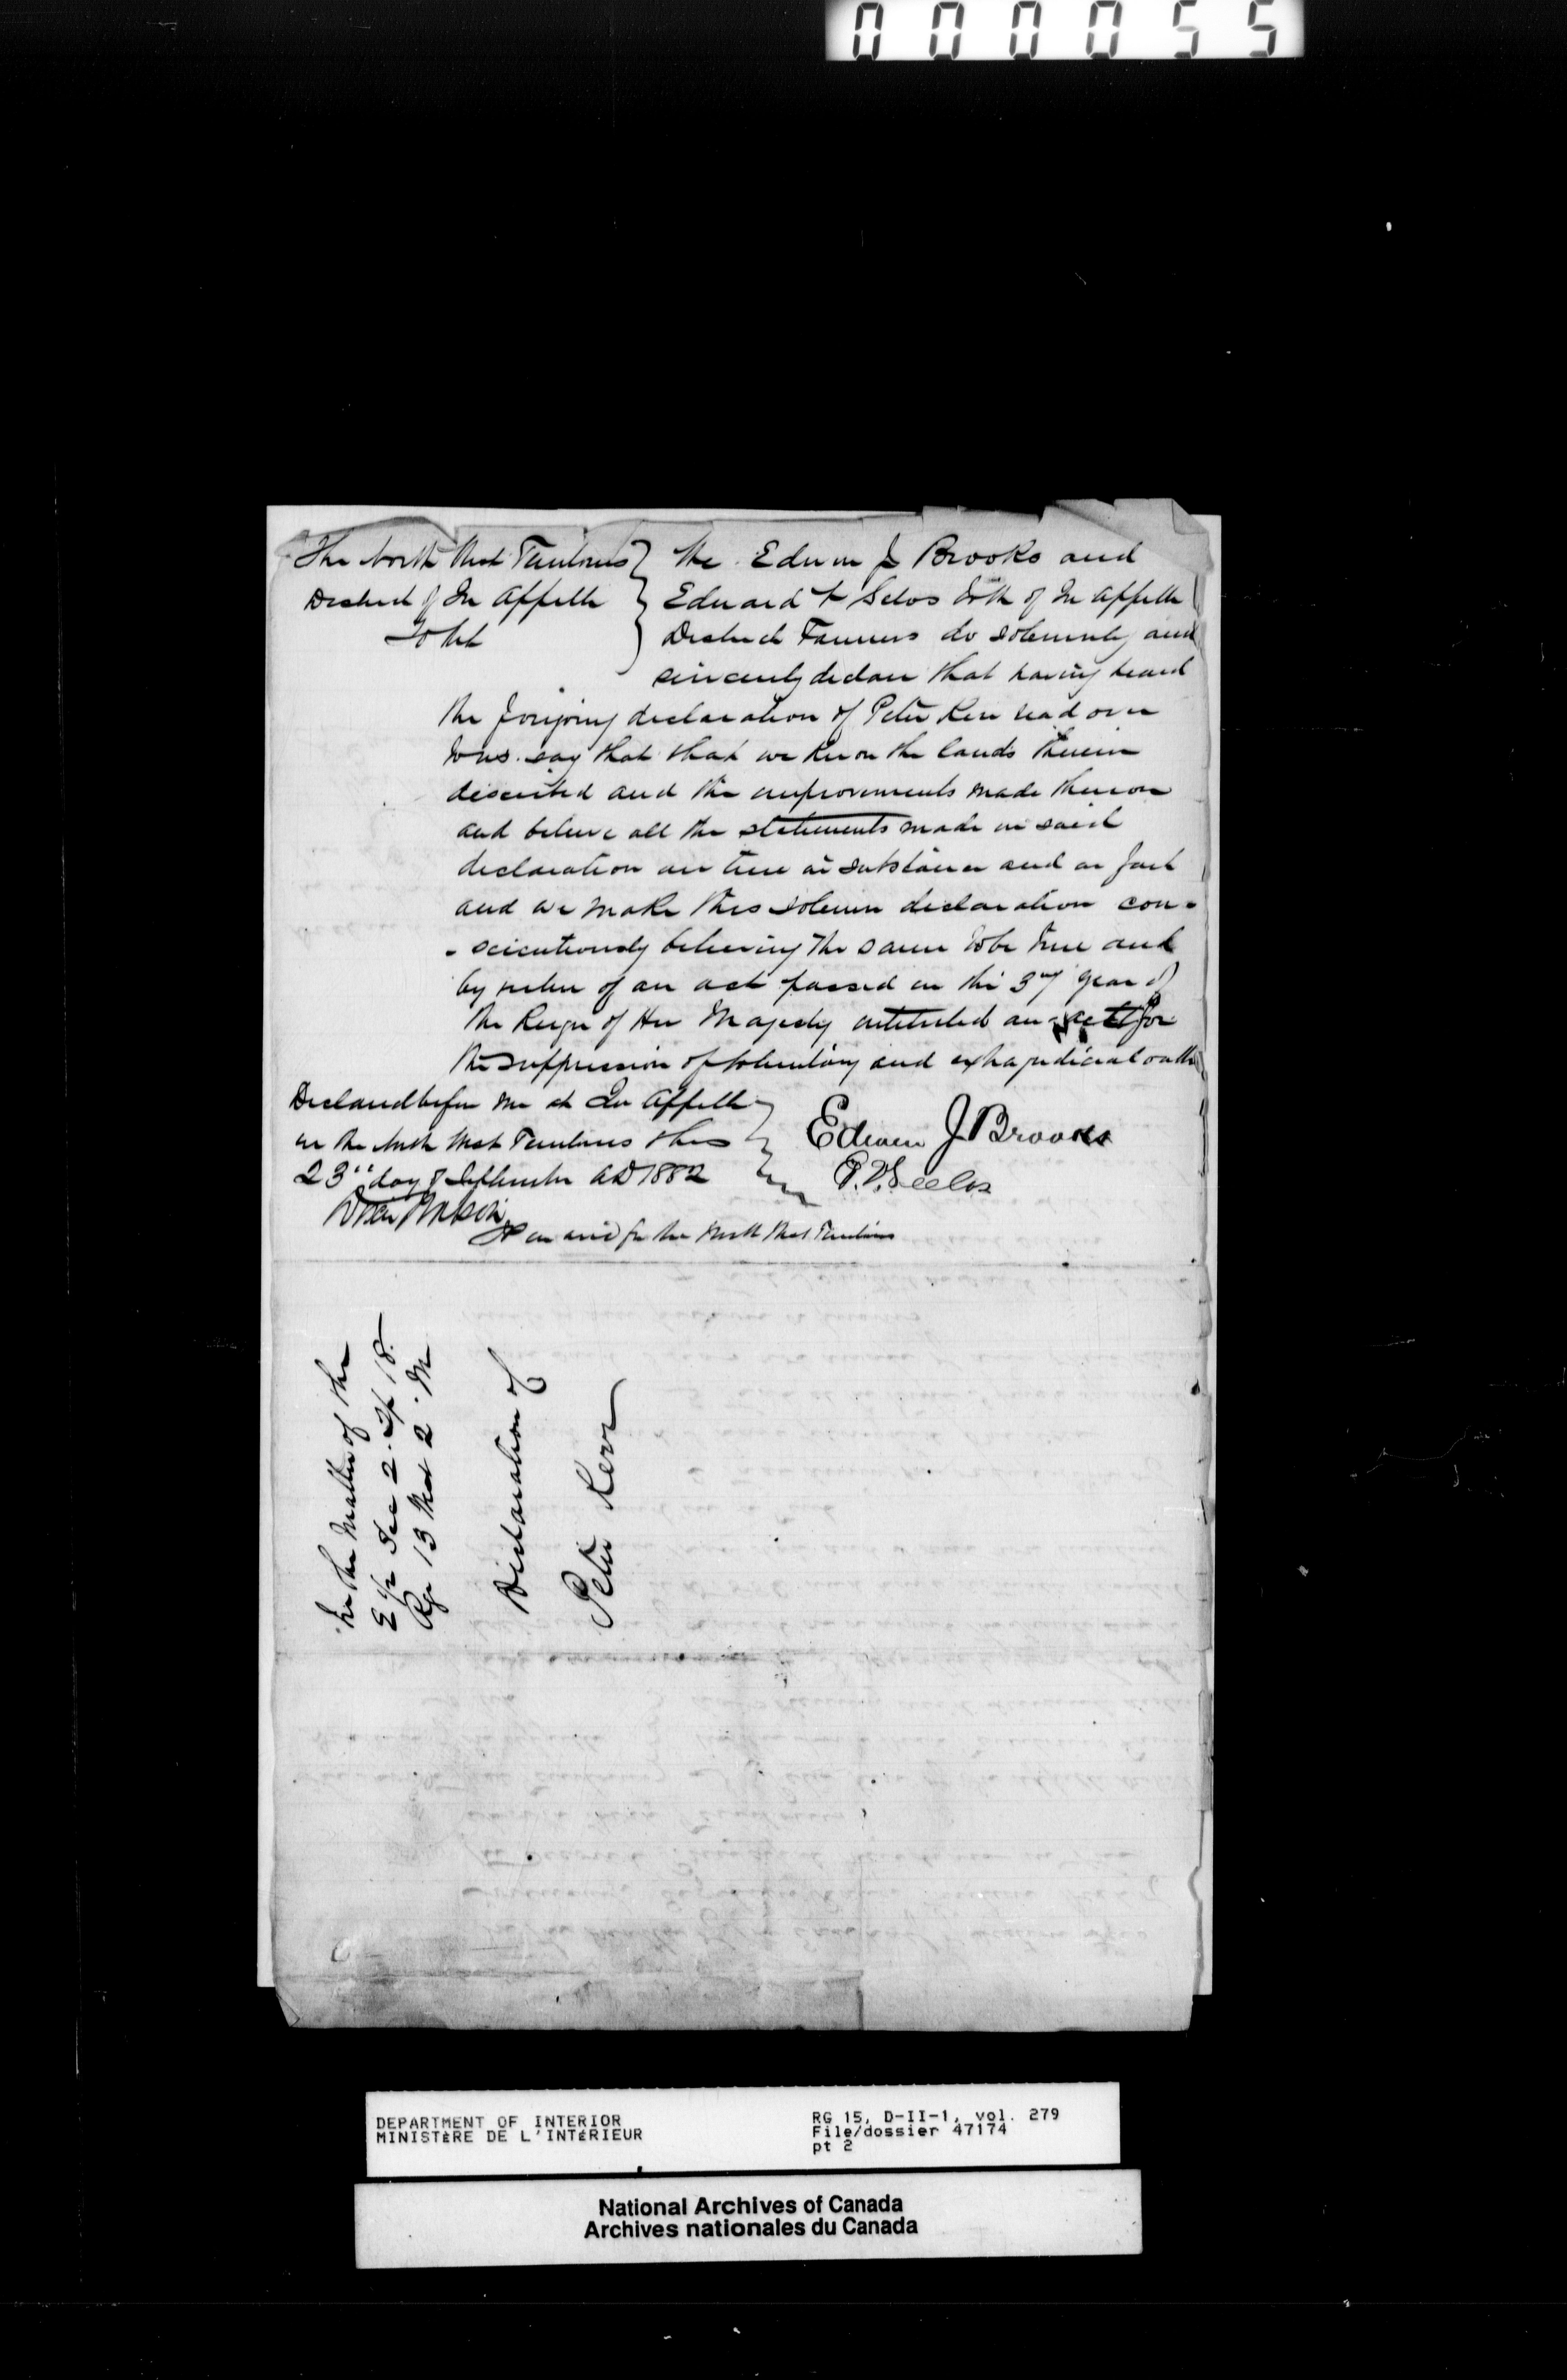 000055
The North West Territories } We Edwin J Brooks and
District of Qu Appelle } Edward Seelos both of Qu Appelle
To Wit } District Farmers do solemnly and
sincerely declare that having heard
the foregoing declaration of Peter Kerr read over
to us say that that we know the lands therein
described and the improvements made thereon
and believe all the statements made in said
declaration are true in substance and in fact
and we make this solemn declaration con-
- scientiously believing the same to be true and
by virtue of an act passed in the 37 year of
the Reign of Her Majesty intituled an act for
the suppression of voluntary and extrajudicial oaths
Declared before me at Qu Appelle
in the North West Territories this
23" day of September AD 1882
Edwin J. Brooks
JP in and for the North West Territories
In the Matter of the
E 1/2 Sec 2. Tp 18.
Rge 13 West 2. M
Declaration of
Peter Kerr
DEPARTMENT OF INTERIOR
MINISTÈRE DE L'INTÉRIEUR
RG 15, D-II-1, vol. 279
File/dossier 47174
pt 2
National Archives of Canada
Archives nationales du Canada